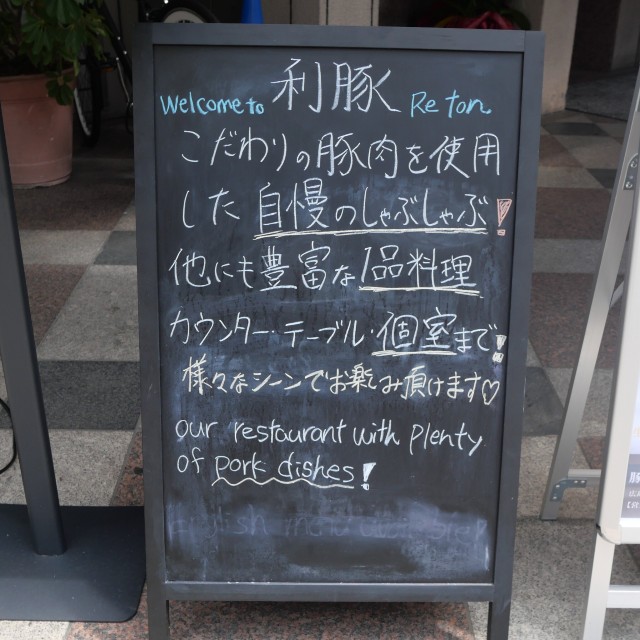 Welcome to 利豚 Re ton
こだわりの豚肉を使用
した自慢のしゃぶしゃぶ!
他にも豊富な1品料理
カウンター・テーブル・個室まで!
様々なシーンでお楽しみ頂けます♡
our restaurant with plenty
of pork dishes!